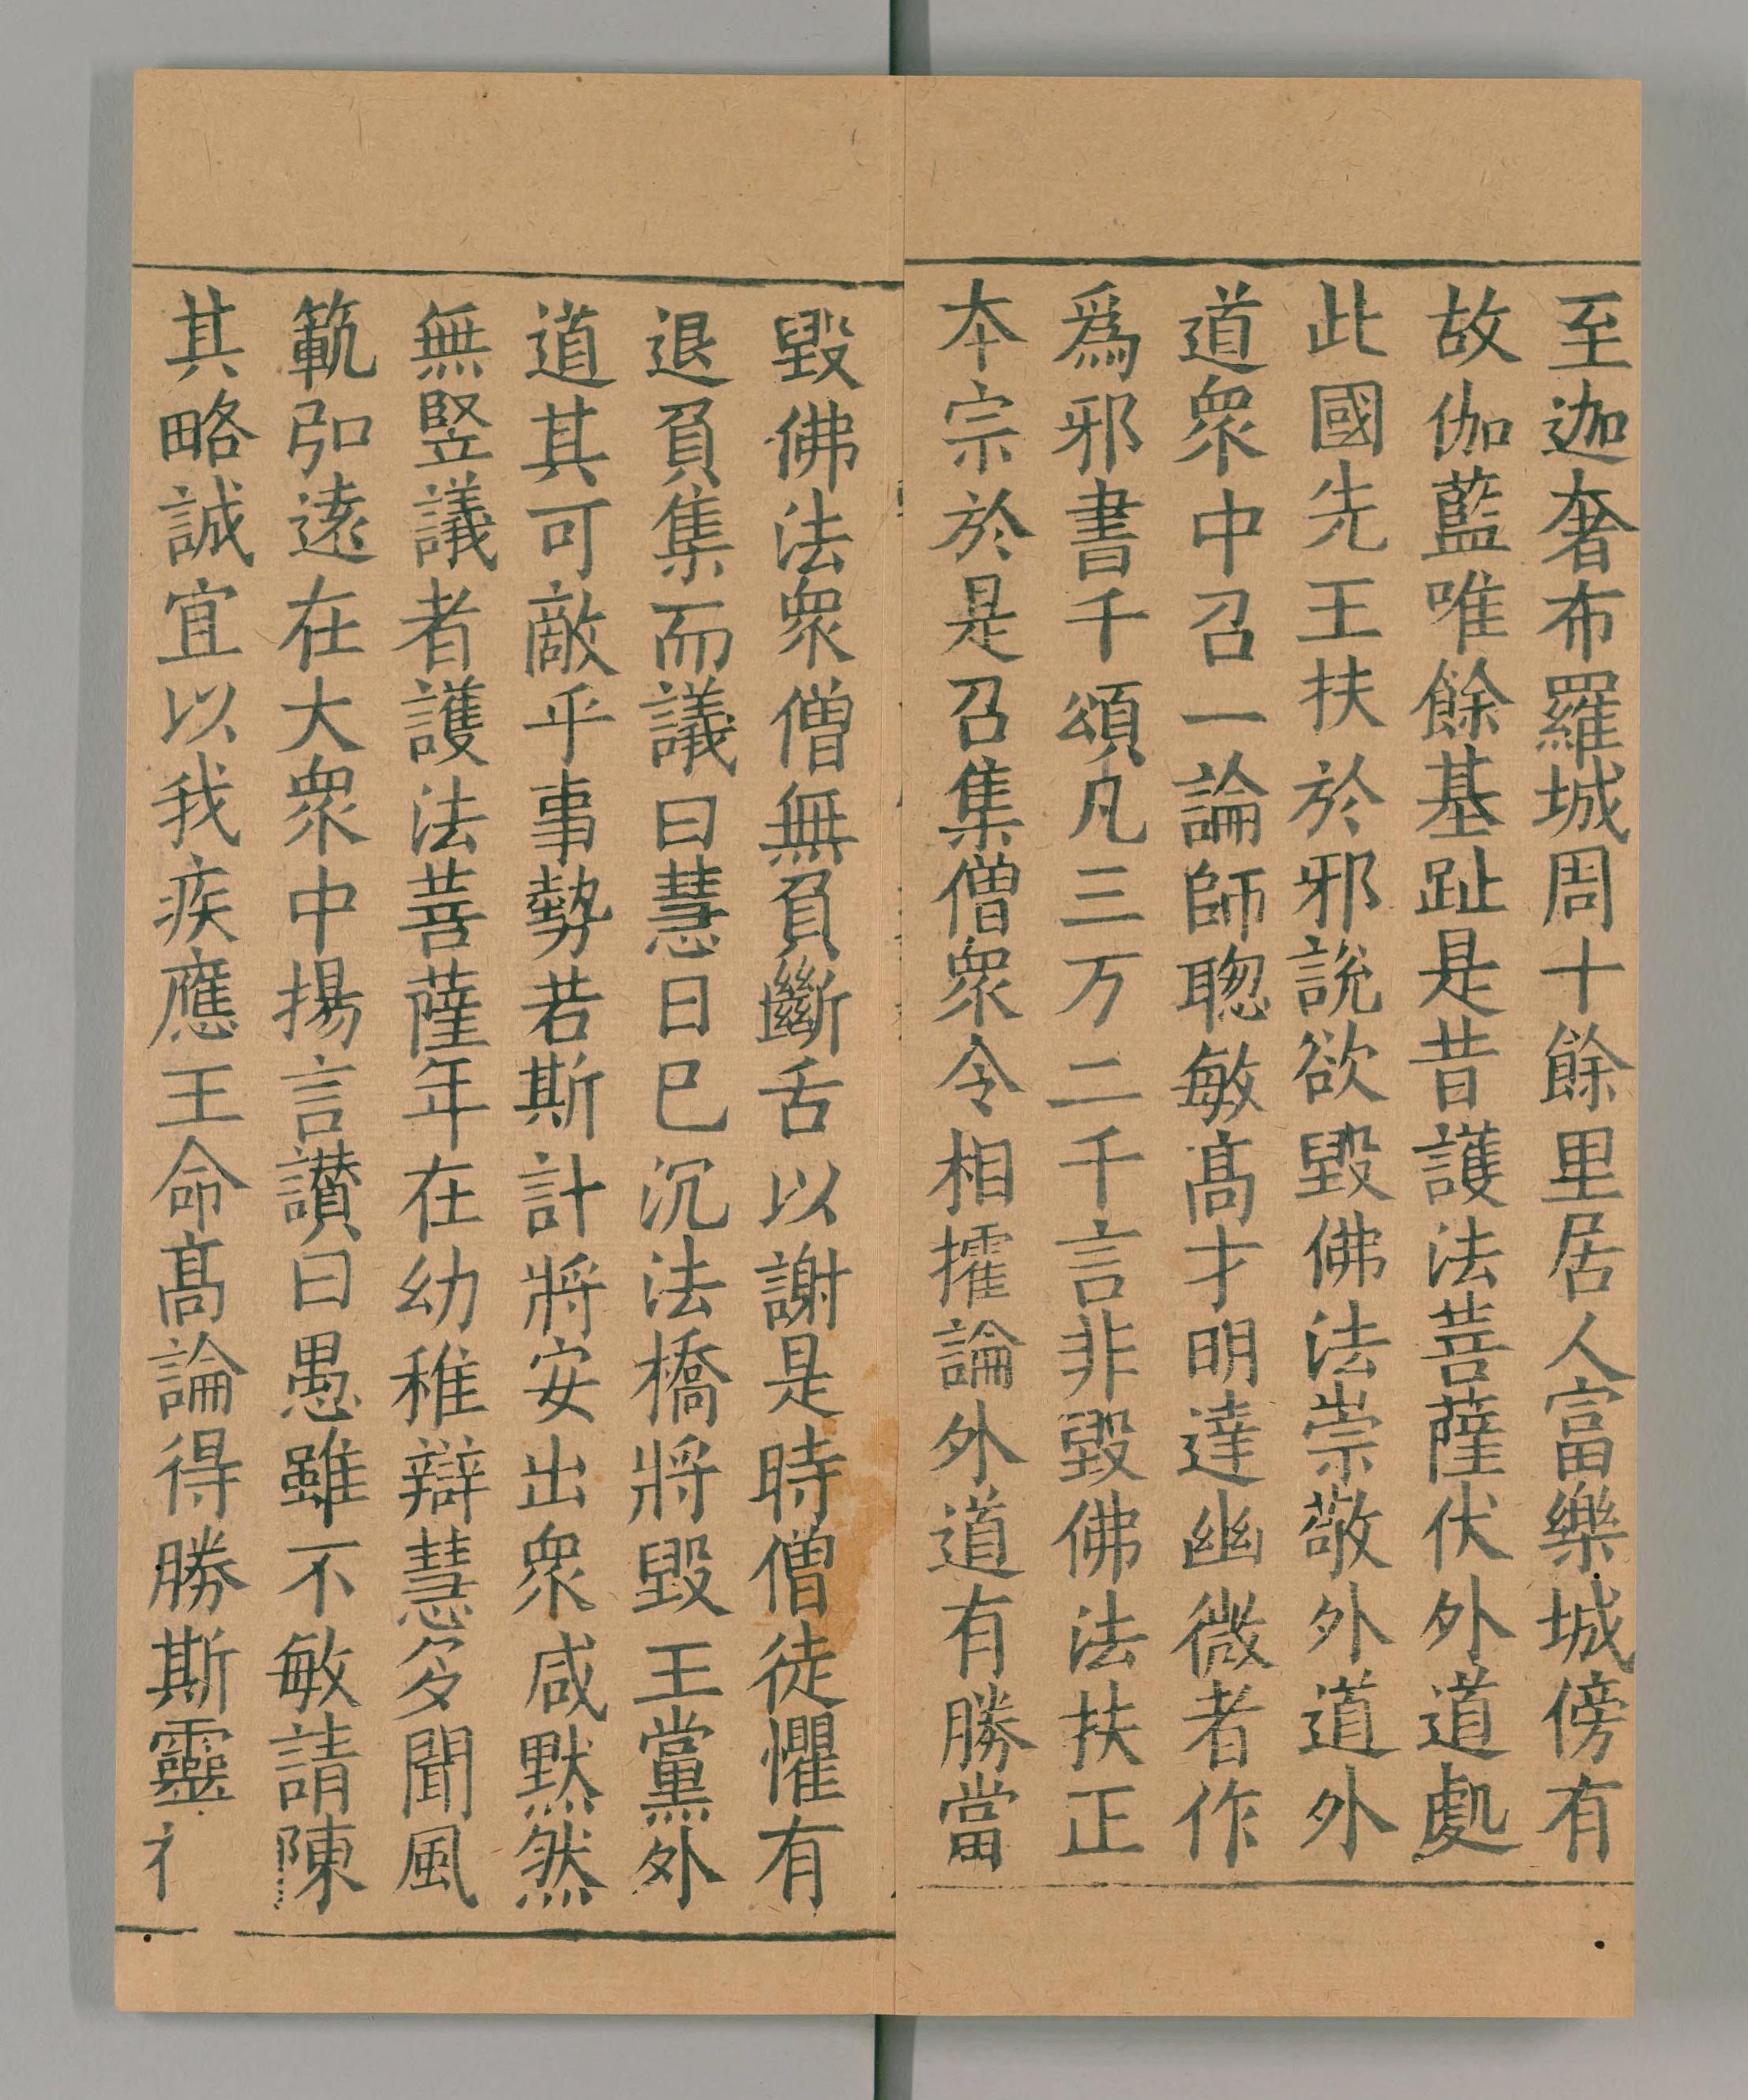 至迦奢布羅城周十餘里居人富樂城傍有
故伽藍唯餘基趾是昔護法菩薩伏外道處
此國先王扶於邪說欲毀佛法崇敬外道外
道衆中召一論師聦敏髙才明達幽微者作
爲邪書千頌凡三万二千言非毀佛法扶正
本宗於是召集僧衆令相攉論外道有勝當
毀佛法衆僧無負斷舌以謝是時僧徒懼有
退負集而議曰慧日已沉法橋將毀王黨外
道其可敵乎事勢若斯計將安出衆咸默然
無竪議者護法菩薩年在幼稚辯慧多聞風
範弘遠在大衆中揚言讃曰愚雖不敏請陳
其略誠宜以我疾應王命髙論得勝斯靈